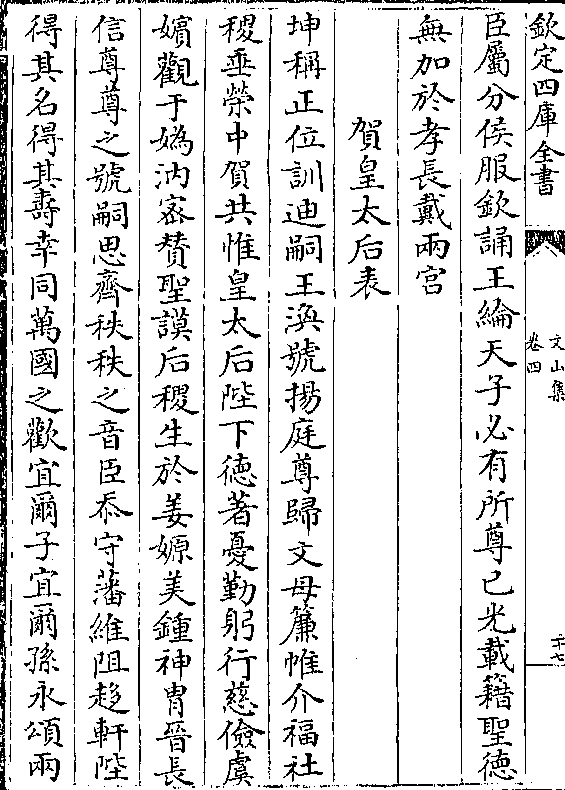 欽定四庫全書
文山集
卷四
十七
臣屬分侯服欽誦王綸天子必有所尊已光載籍聖徳
無加於孝長戴兩宮
賀皇太后表
坤稱正位訓迪嗣王渙號揚庭尊歸文母簾帷介福社
稷垂榮中賀共惟皇太后陛下徳著憂勤躬行慈儉虞
嬪觀于媯汭宻賛聖謨后稷生於姜嫄美鍾神胄晉長
信尊尊之號嗣思齊秩秩之音臣忝守藩維阻趍軒陛
得其名得其壽幸同萬國之歡宜爾子宜爾孫永頌兩